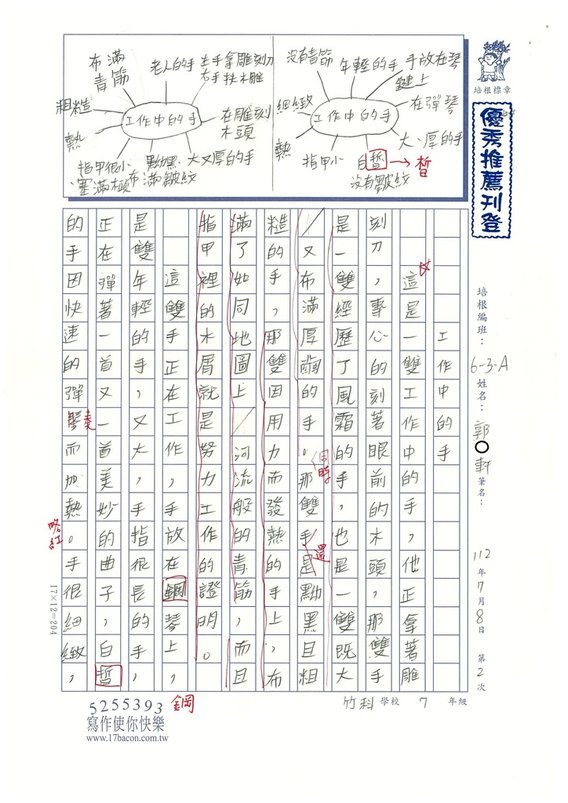 布滿青筋
老人的手
左手拿雕刻刀
右手扶木雕
粗糙
工作中的手
在雕刻木頭
熱
指甲很小
塞滿木
黝黑
布滿皺紋
大又厚的手
沒有青筋
年輕的手
手放在琴鍵上
細緻
工作中的手
在彈琴
熱
指甲小
白晢→皙
沒有皺紋
大、厚的手
培根標章
優秀推薦刊登
培根編班：6-3-A 姓名：郭○軒 筆名：
112年7月8日 第2次
工作中的手
這是一雙工作中的手，他正拿著雕
刻刀，專心的刻著眼前的木頭，那雙手
是一雙經歷了風霜的手，也是一雙既大
又布滿厚繭的手。那雙手是黝黑且粗
同時
還
糙的手，那雙因用力而發熱的手上，布
滿了如同地圖上河流般的青筋，而且
指甲裡的木屑就是努力工作的證明。
這雙手正在工作，手放在鋼琴上，
是雙年輕的手，又大，手指很長的手，
正在彈著一首又一首美妙的曲子，白晢
的手因快速的彈琴而加熱。手很細緻，
奏
略紅
鋼
17×12=204
竹科學校 7 年級
5255393
寫作使你快樂
www.17bacon.com.tw